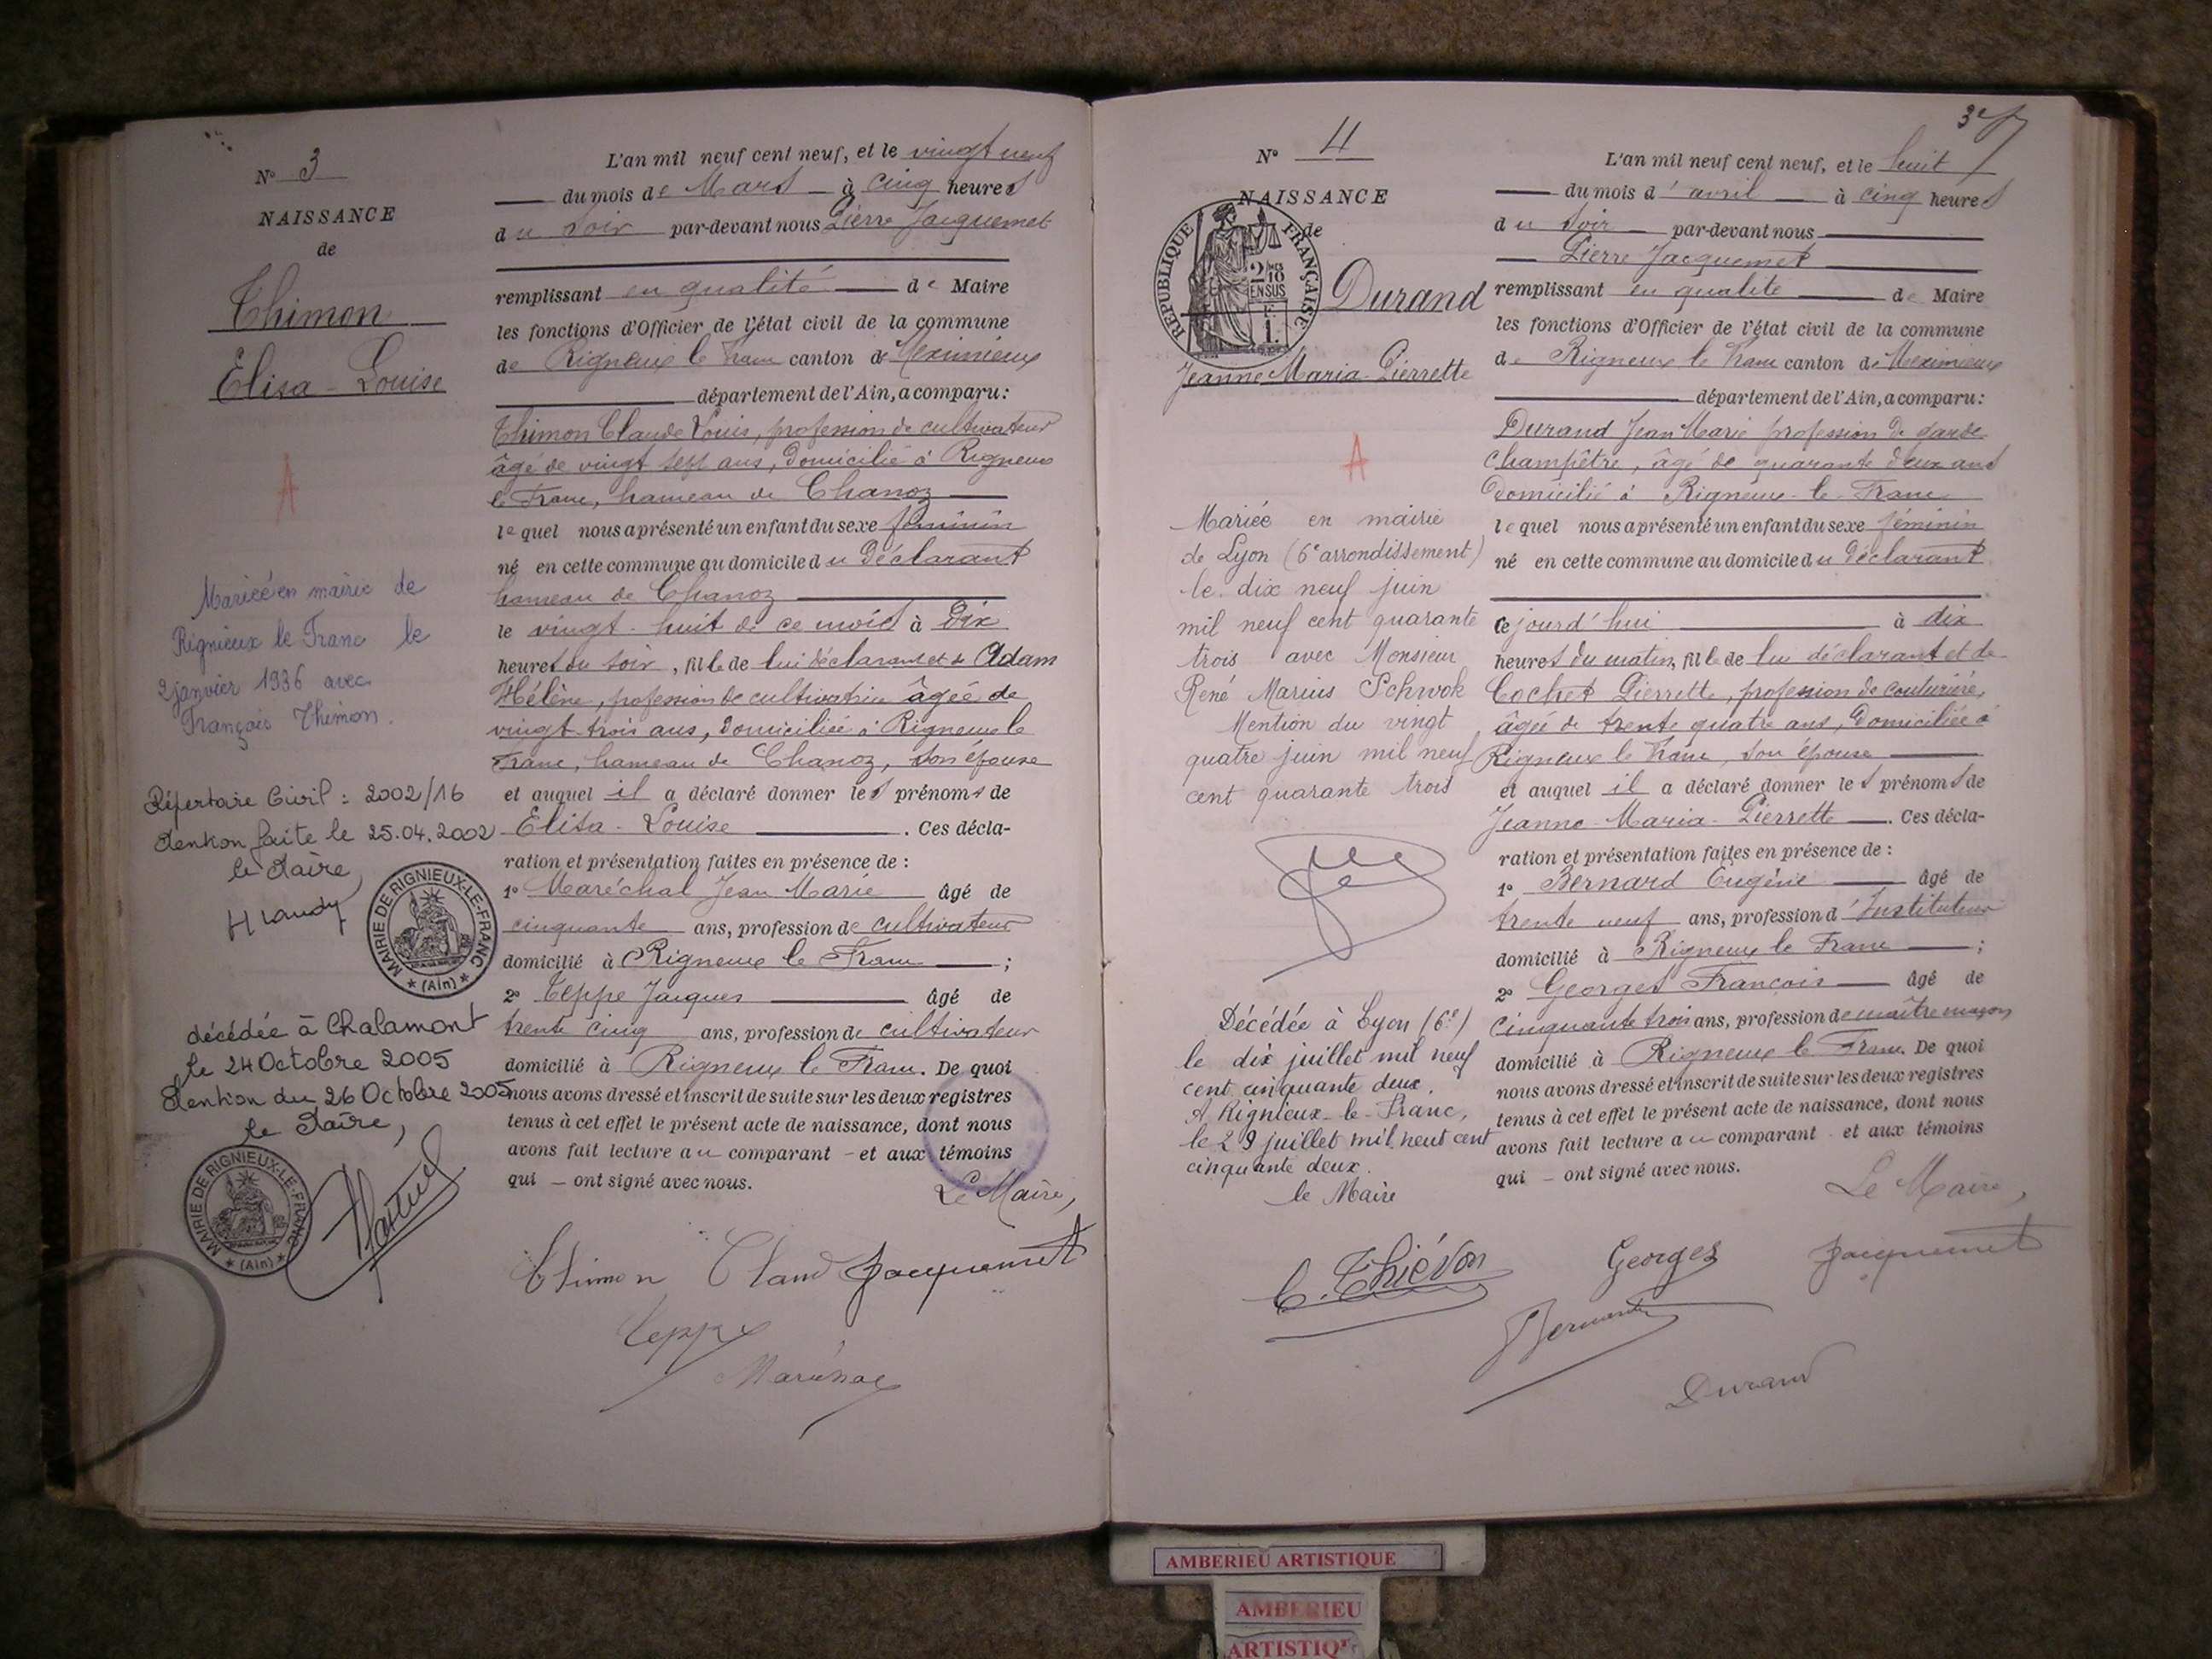 N° 3
NAISSANCE
de
Thimon
Elisa - Louise
A
Mariée en mairie de
Rignieux le Franc le
2 janvier 1936 avec
François Thimon.
Répertoire Civil : 2002/16
Mention faite le 25.04.2002
le Maire,
décédée à Chalamont
le 24 Octobre 2005
Mention du 26 Octobre 2005
le Maire,
MAIRIE DE RIGNIEUX-LE-FRANC
* (Ain) *
MAIRIE DE RIGNIEUX-LE-FRANC
* (Ain) *
L'an mil neuf cent neuf, et le vingt neuf
du mois de Mars à cinq heures
du soir par-devant nous Pierre Jacquemet
remplissant en qualité de Maire
les fonctions d'Officier de l'état civil de la commune
de Rigneux le Franc canton de Meximieux
département de l'Ain, a comparu :
Thimon Claude Louis, profession de cultivateur
âgé de vingt sept ans, domicilié à Rigneux
le Franc, hameau de Chanoz
lequel nous a présenté un enfant du sexe féminin
né en cette commune au domicile du déclarant
hameau de Chanoz
le vingt-huit de ce mois à dix
heures du soir, fille de lui déclarant et de Adam
Hélène, profession de cultivatrice âgée de
vingt-trois ans, domiciliée à Rigneux le
Franc, hameau de Chanoz, son épouse
et auquel il a déclaré donner les prénoms de
Elisa - Louise. Ces décla-
ration et présentation faites en présence de :
1° Maréchal Jean Marie âgé de
cinquante ans, profession de cultivateur
domicilié à Rigneux le Franc ;
2° Teppe Jacques âgé de
trente cinq ans, profession de cultivateur
domicilié à Rigneux le Franc. De quoi
nous avons dressé et inscrit de suite sur les deux registres
tenus à cet effet le présent acte de naissance, dont nous
avons fait lecture au comparant - et aux témoins
qui - ont signé avec nous.
Le Maire,
Thimon Claud Jacquemet
Teppe
Maréchal
3e
N° 4
NAISSANCE
de
RÉPUBLIQUE FRANÇAISE
2/10 EN SUS
Durand
Jeanne Maria-Pierrette
A
Mariée en mairie
de Lyon (6e arrondissement)
le dix neuf juin
mil neuf cent quarante
trois avec Monsieur
René Marius Schwok
Mention du vingt
quatre juin mil neuf
cent quarante trois
Décédée à Lyon (6e)
le dix juillet mil neuf
cent cinquante deux.
A Rignieux-le-Franc,
le 29 juillet mil neuf cent
cinquante deux.
le Maire
C. Thiévon
L'an mil neuf cent neuf, et le huit
du mois d'avril à cinq heures
du soir par-devant nous
Pierre Jacquemet
remplissant en qualité de Maire
les fonctions d'Officier de l'état civil de la commune
de Rigneux le Franc canton de Meximieux
département de l'Ain, a comparu :
Durand Jean Marie profession de garde
champêtre, âgé de quarante deux ans
domicilié à Rigneux-le-Franc
lequel nous a présenté un enfant du sexe féminin
né en cette commune au domicile du déclarant
ce jourd'hui à dix
heures du matin, fille de lui déclarant et de
Cochet Pierrette, profession de couturière,
âgée de trente quatre ans, domiciliée à
Rigneux le Franc, son épouse
et auquel il a déclaré donner les prénoms de
Jeanne-Maria-Pierrette. Ces décla-
ration et présentation faites en présence de :
1° Bernard Eugène âgé de
trente neuf ans, profession d'Instituteur
domicilié à Rigneux le Franc ;
2° Georges François âgé de
cinquante trois ans, profession de maître maçon
domicilié à Rigneux le Franc. De quoi
nous avons dressé et inscrit de suite sur les deux registres
tenus à cet effet le présent acte de naissance, dont nous
avons fait lecture au comparant - et aux témoins
qui - ont signé avec nous.
Le Maire,
Georges Jacquemet
Bernard
Durand
AMBERIEU ARTISTIQUE
AMBERIEU
ARTISTIQ